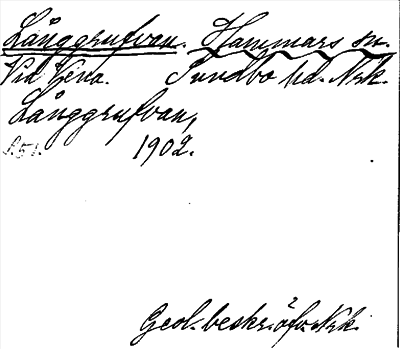 Långgrufvan. Hammars sn.
Vid Hena. Sundbo hd. Nrk.
Långgrufvan,
s. 51. 1902.
Geol. beskr. öfv. Nrk.